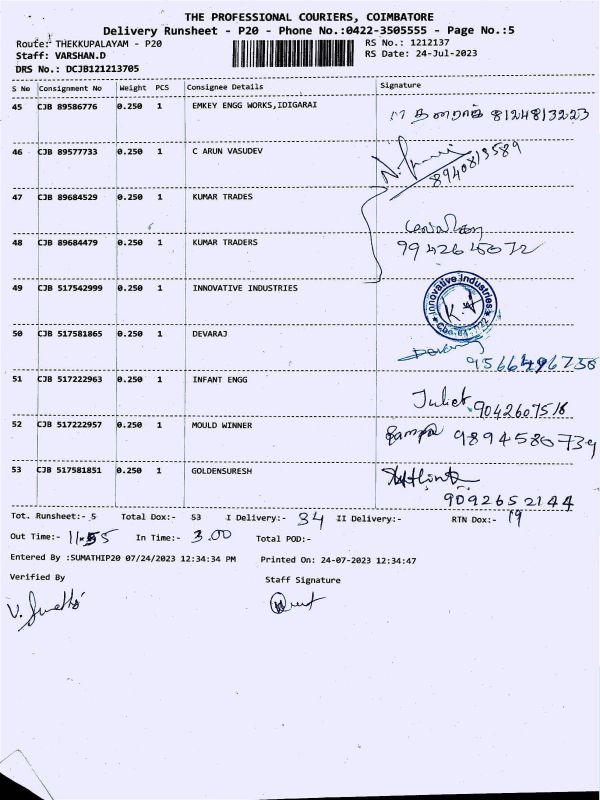 THE PROFESSIONAL COURIERS, COIMBATORE
Delivery Runsheet - P20 - Phone No.:0422-3505555 - Page No.:5
Route: THEKKUPALAYAM - P20 RS No.: 1212137
Staff: VARSHAN.D RS Date: 24-Jul-2023
DRS No.: DCJB121213705
S No Consignment No Weight PCS Consignee Details Signature
45 CJB 89586776 0.250 1 EMKEY ENGG WORKS,IDIGARAI 8124813223
46 CJB 89577733 0.250 1 C ARUN VASUDEV 8940813589
47 CJB 89684529 0.250 1 KUMAR TRADES
48 CJB 89684479 0.250 1 KUMAR TRADERS
49 CJB 517542999 0.250 1 INNOVATIVE INDUSTRIES Innovative Industries
50 CJB 517581865 0.250 1 DEVARAJ
51 CJB 517222963 0.250 1 INFANT ENGG Juliet 9042607516
52 CJB 517222957 0.250 1 MOULD WINNER
53 CJB 517581851 0.250 1 GOLDENSURESH 9092652144
Tot. Runsheet:- 5 Total Dox:- 53 I Delivery:- 34 II Delivery:- RTN Dox:- 19
Out Time:- 11.55 In Time:- 3.00 Total POD:-
Entered By :SUMATHIP20 07/24/2023 12:34:34 PM Printed On: 24-07-2023 12:34:47
Verified By Staff Signature